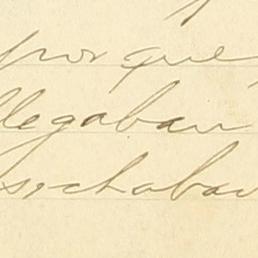 por que
llegaban
sechaban